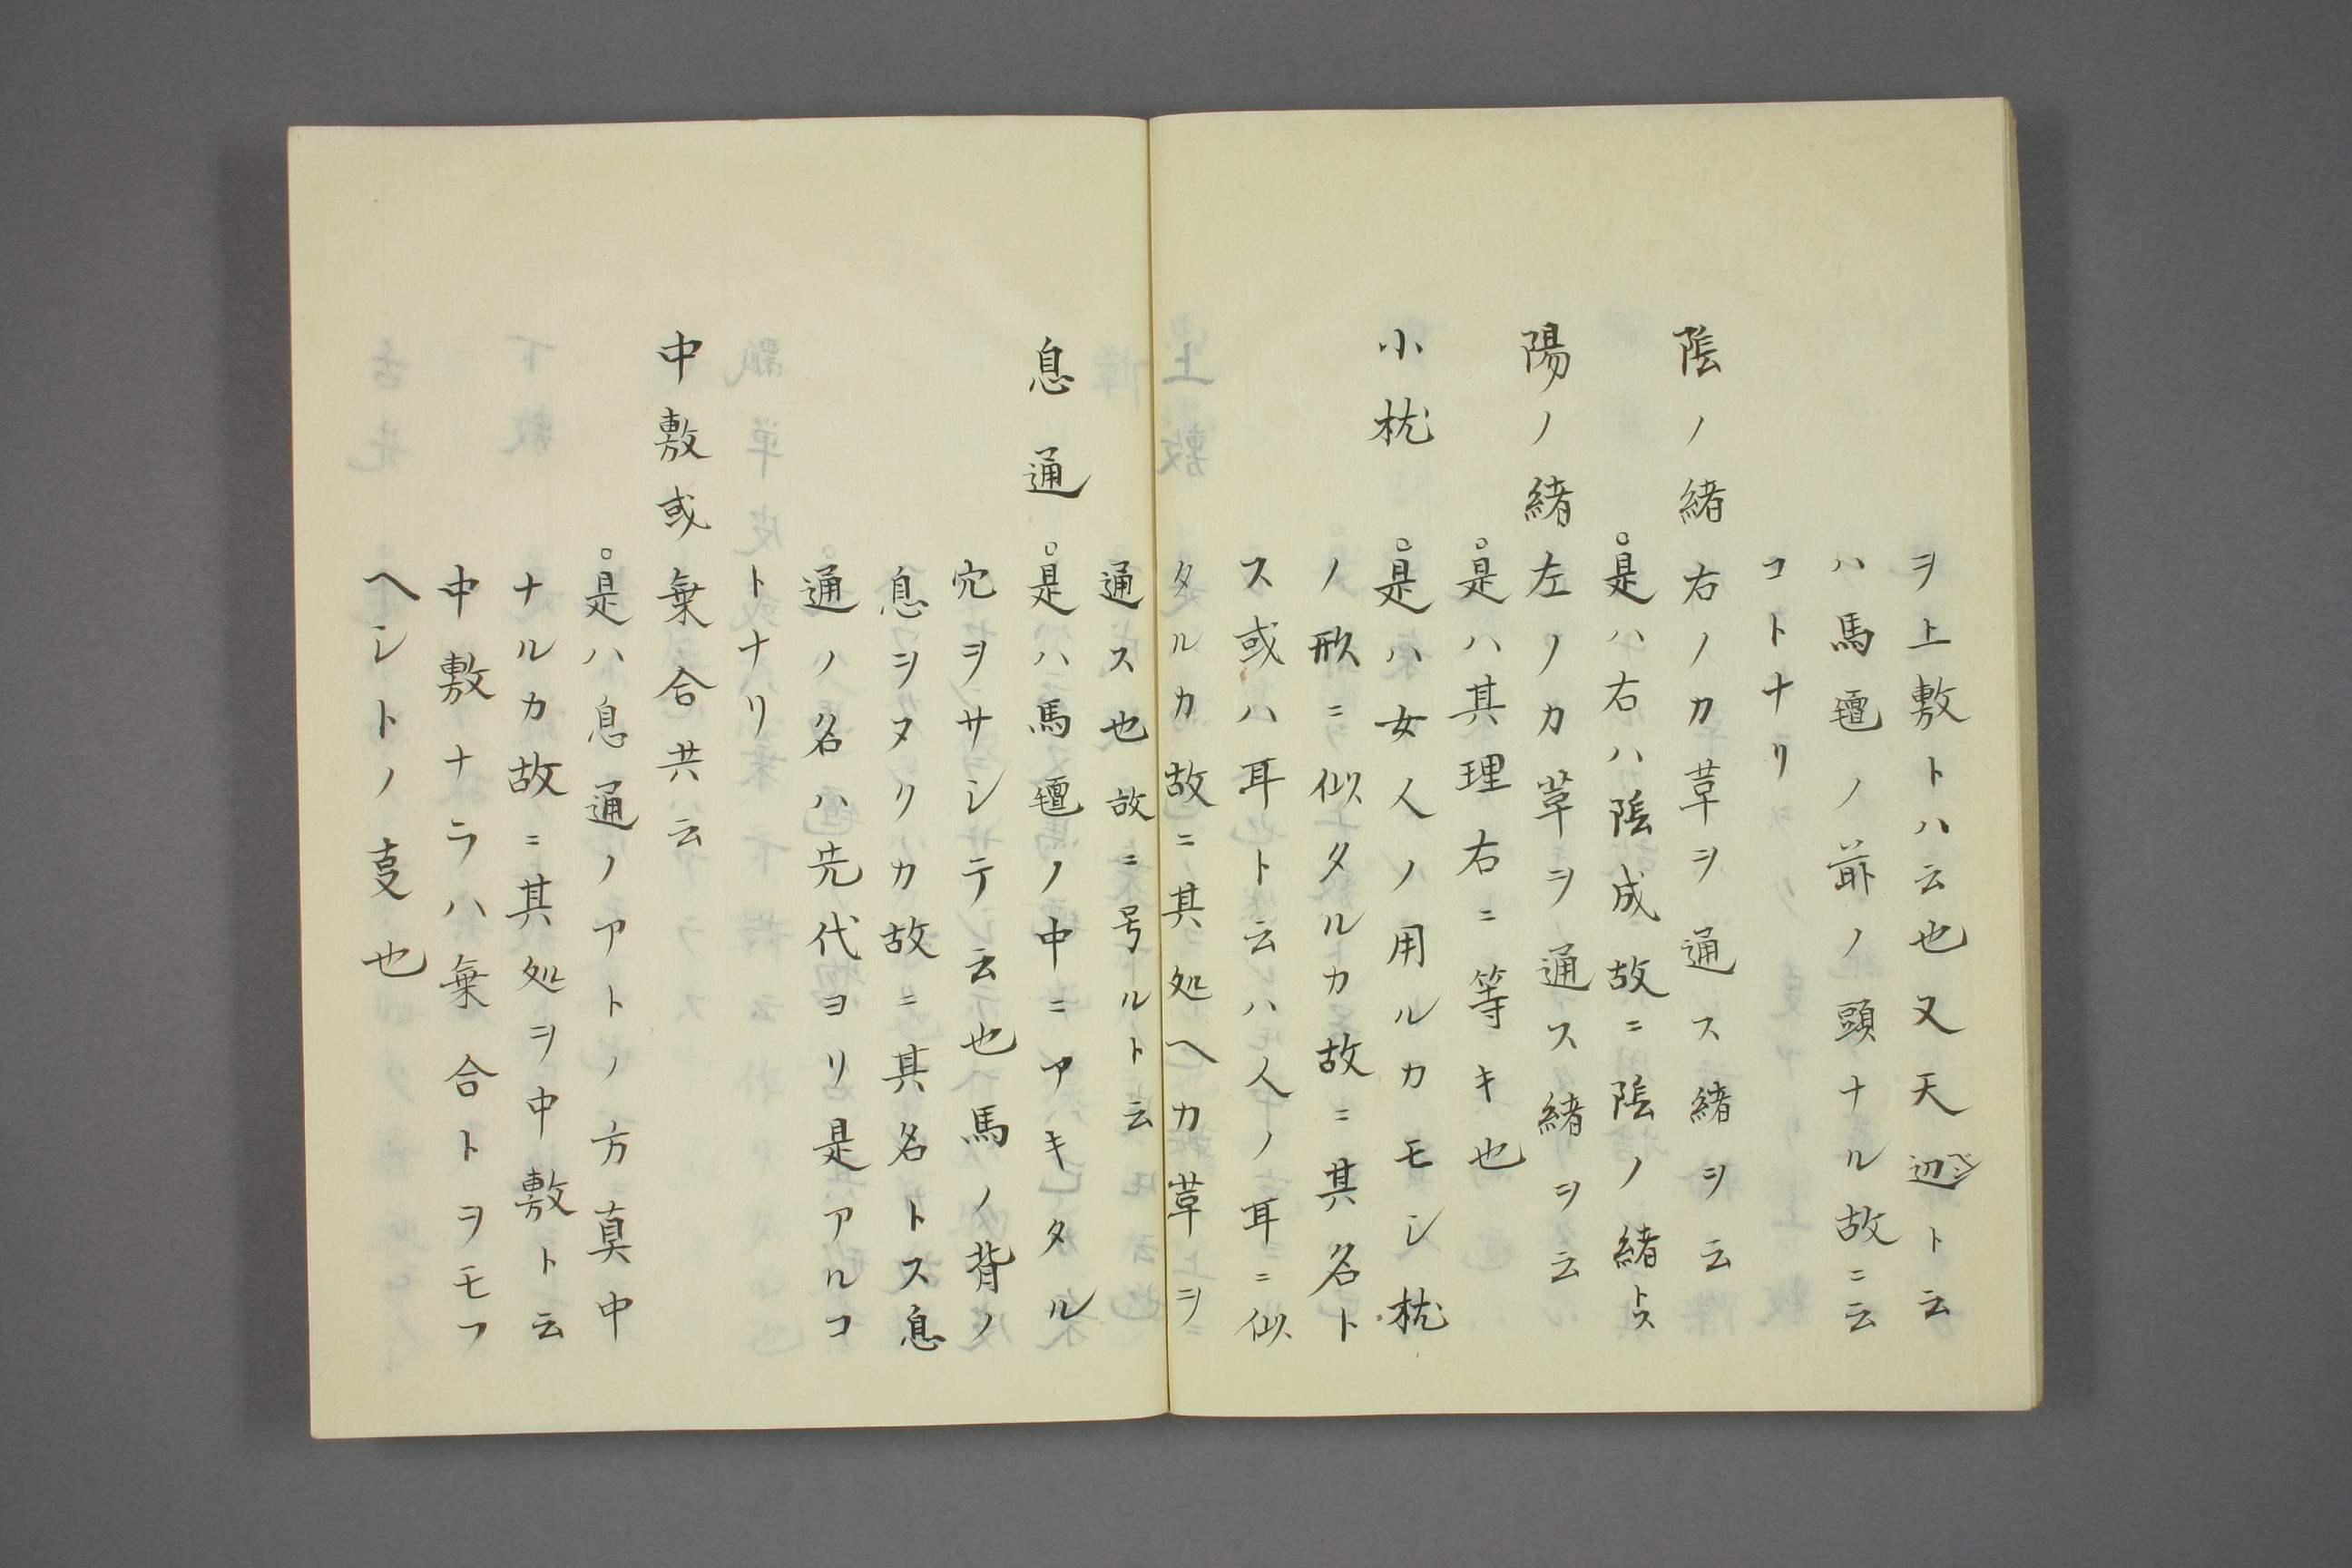 ヲ上敷トハ云也又天辺ヘントト云
ハ馬氊ノ前ノ頭ナル故ニ云
コトナリ
陰ノ緒右ノカ革ヲ通ス緒ヲ云
○是ハ右ハ陰成故ニ陰ノ緒トス
陽ノ緒左ノカ革ヲ通ス緒ヲ云
○是ハ其理右ニ等キ也
小枕○是ハ女人ノ用ルカモシ枕
ノ形ニ似タルカ故ニ其名ト
ス或ハ耳ト云ハ人ノ耳ニ似
タルカ故ニ其処ヘカ革ヲ
通ス也故ニ号ルト云
息通○是ハ馬氊ノ中ニアキタル
穴ヲサシテ云也馬ノ背ノ
息ヲヌクカ故ニ其名トス息
通ノ名ハ先代ヨリ是アルコ
トナリ
中敷或棄合共云
○是ハ息通ノアトノ方真中
ナルカ故ニ其処ヲ中敷ト云
中敷ナラハ棄合トヲモフ
ヘシトノ㕝也